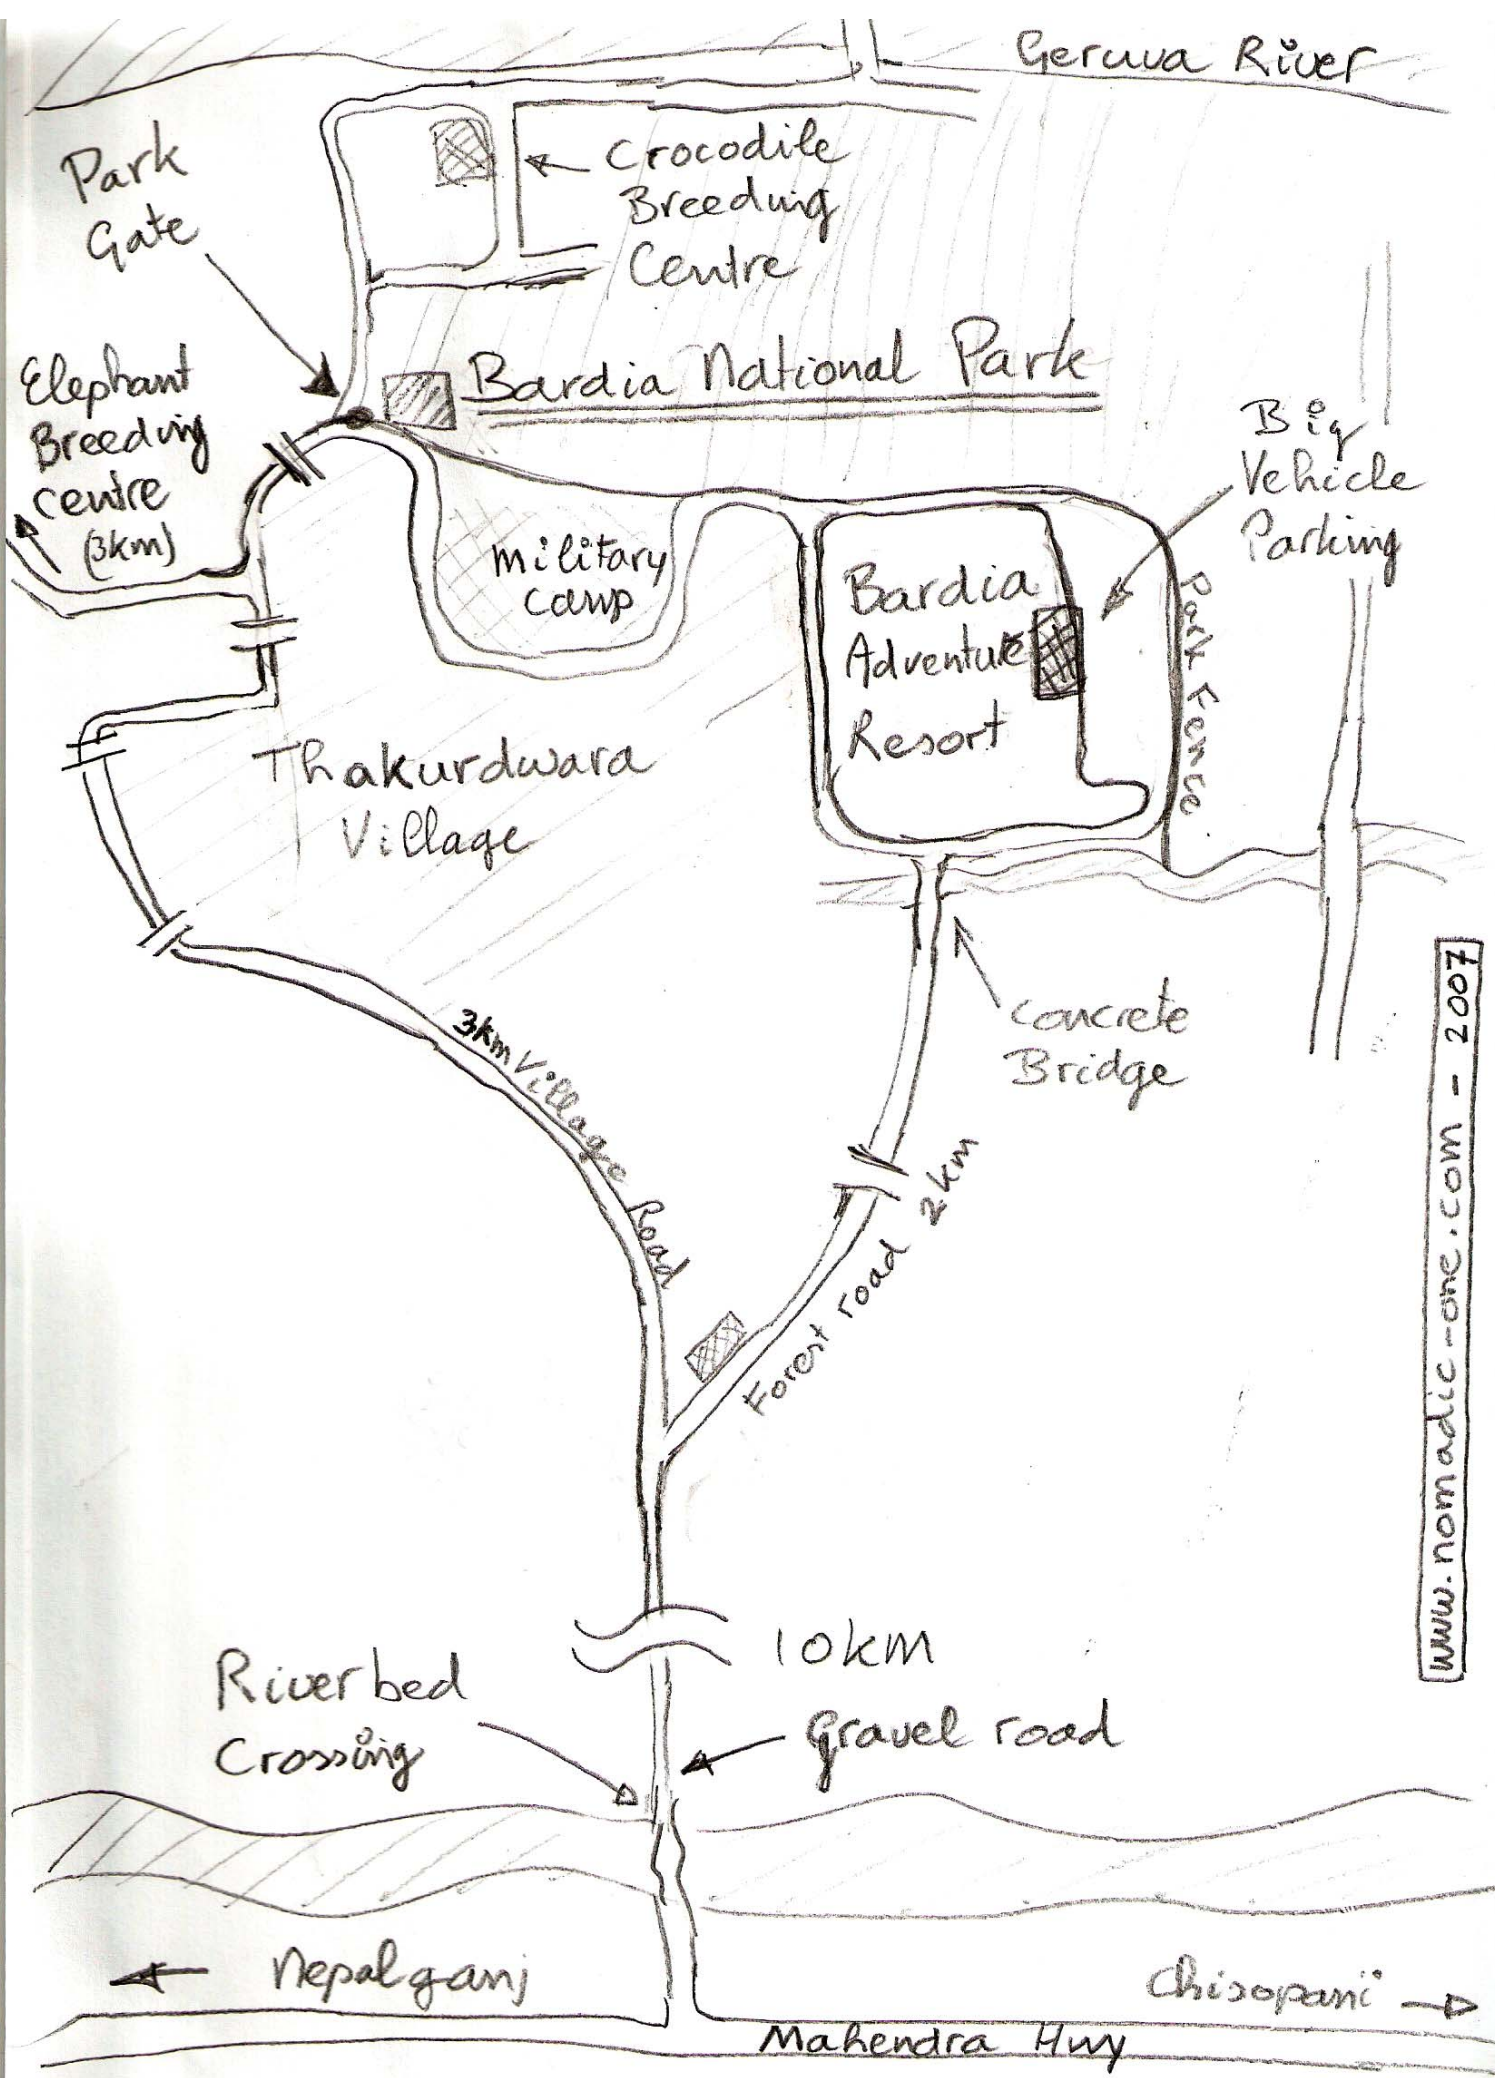 Geruva River
Park
Gate
Crocodile
Breeding
Centre
Elephant
Breeding
centre
(3km)
Bardia National Park
Big
Vehicle
Parking
military
camp
Bardia
Adventure
Resort
Park Fence
Thakurdwara
Village
Concrete
Bridge
3km Village Road
Forest road 2km
www.nomadic-one.com - 2007
10km
Riverbed
Crossing
Gravel road
Nepalganj
Chisopani
Mahendra Hwy